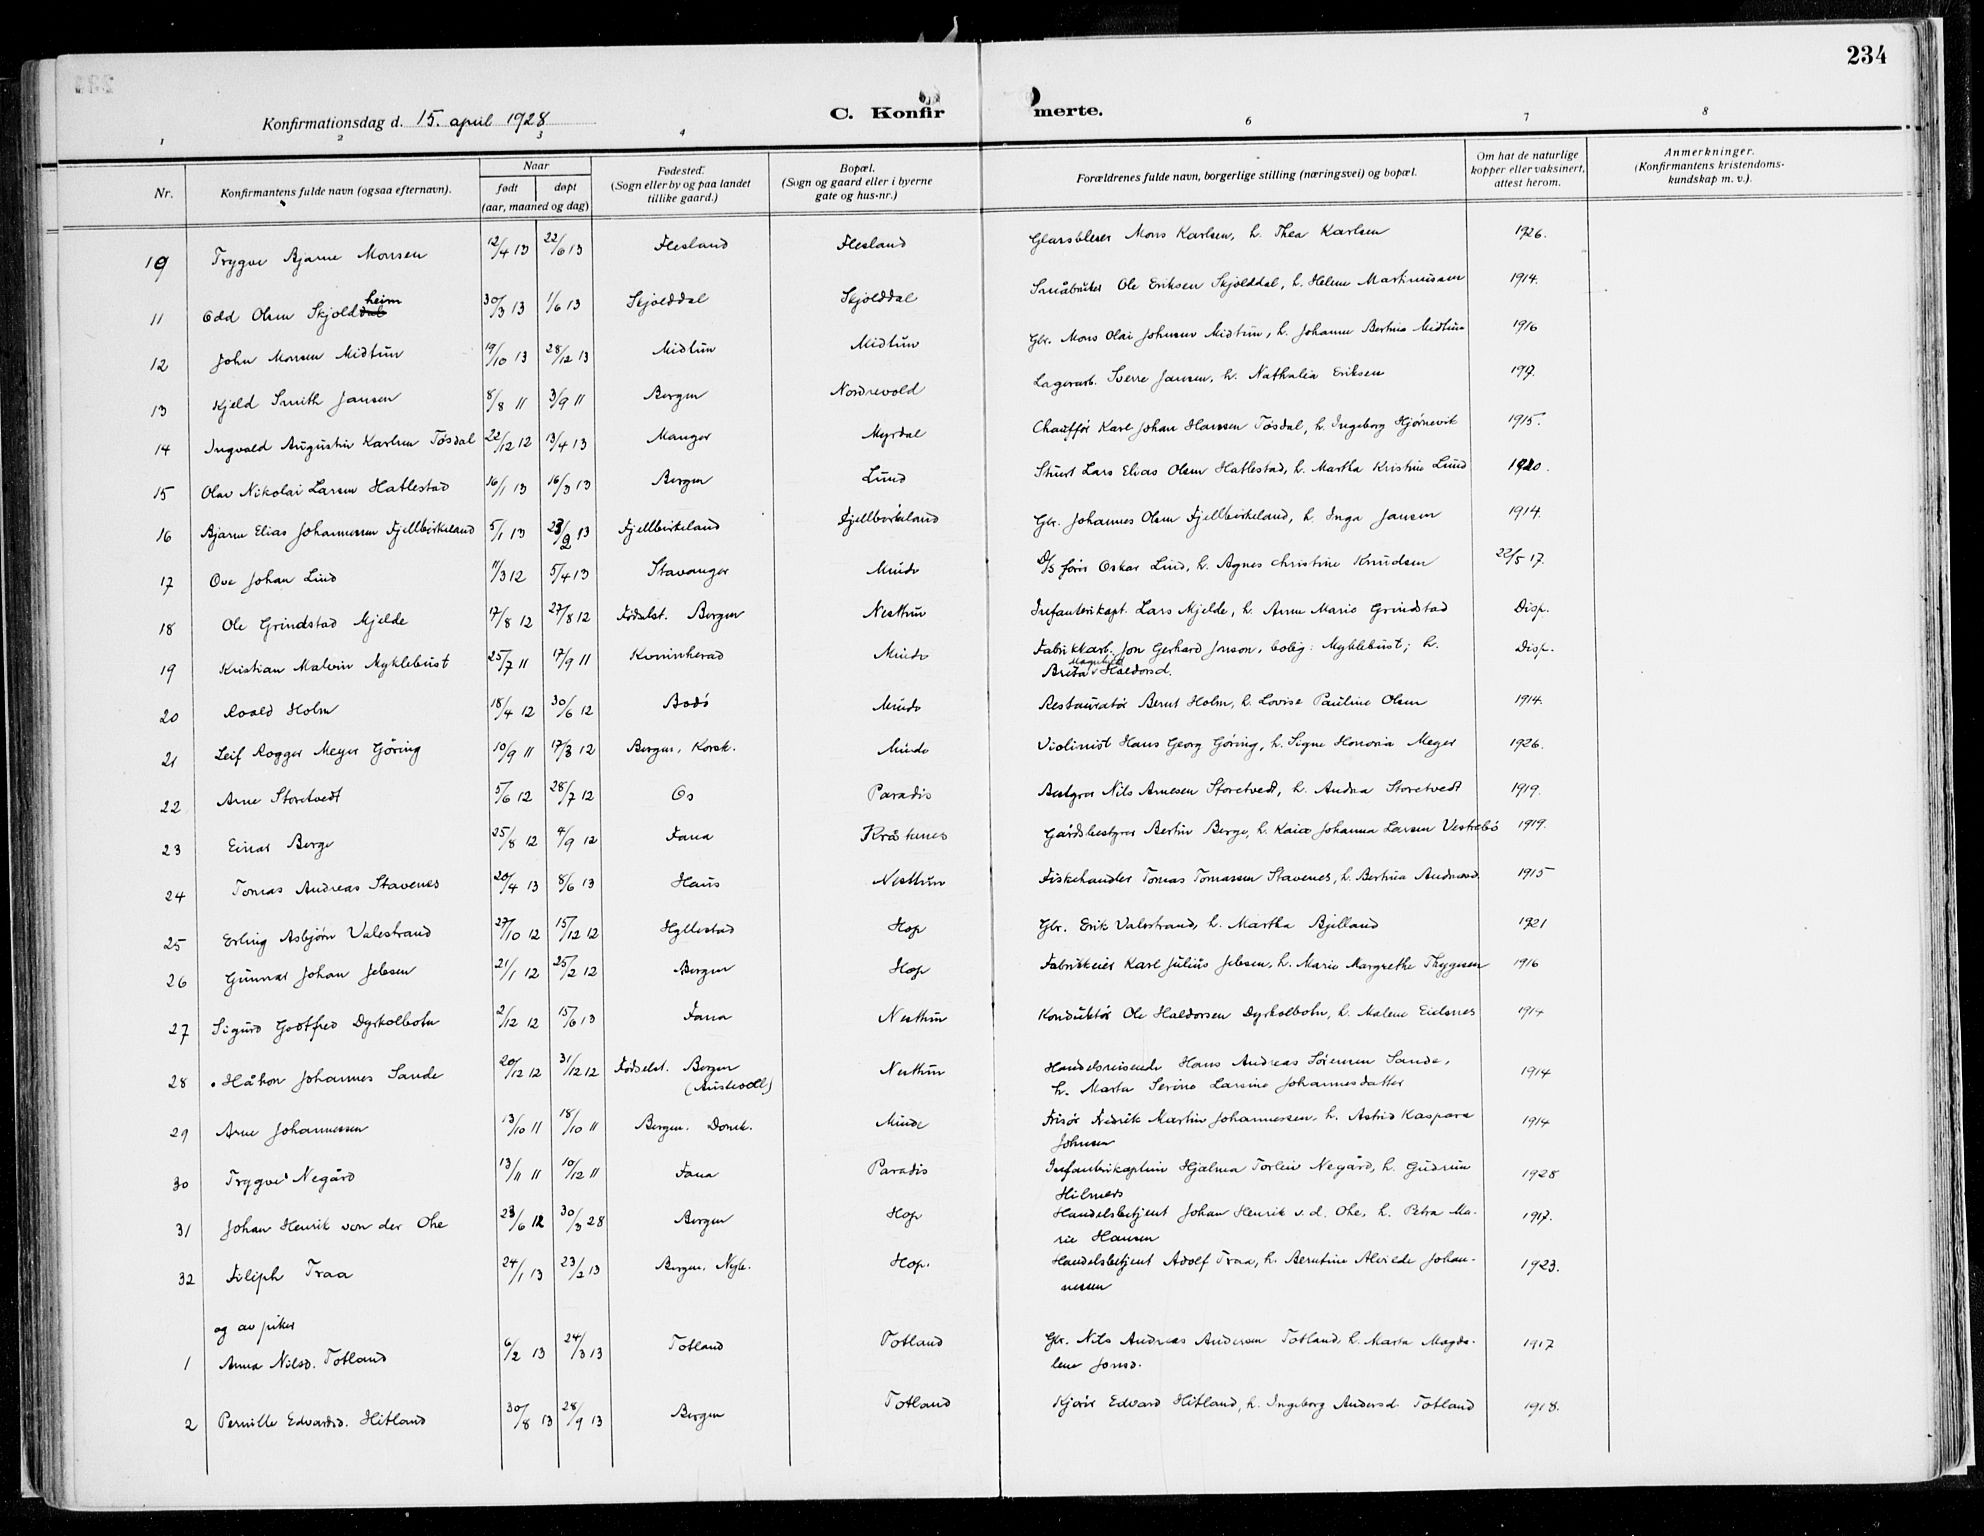 234
Konfirmationsdag d. 15. april 1928
C. Konfirmerte.
1 2 3 4 6 7 8
Nr. Konfirmantens fulde navn (ogsaa efternavn). Naar født døpt (aar, maaned og dag) Fødested. (Sogn eller by og paa landet tillike gaard.) Bopæl. (Sogn og gaard eller i byerne gate og hus-nr.) Forældrenes fulde navn, borgerlige stilling (næringsvei) og bopæl. Om hat de naturlige kopper eller vaksinert, attest herom. Anmerkninger. (Konfirmantens kristendoms-kundskap m. v.).
10 Trygve Bjarne Monsen 12/4 13 22/6 13 Flesland Flesland Glarsbleser Mons Karlsen, h. Thea Karlsen 1926.
11 Odd Olsen Skjolddal heim 30/3 13 1/6 13 Skjolddal Skjolddal Småbruker Ole Eriksen Skjolddal, h. Helene Martinussen 1914.
12 John Monsen Midtun 19/10 13 28/12 13 Midtun Midtun Gbr. Mons Olai Johnsen Midtun, h. Johanne Bertina Midtun 1916
13 Kjeld Smith Jansen 8/8 11 3/9 11 Bergen Nordrevold Lagerarb. Sverre Jansen, h. Nathalia Eriksen 1917.
14 Ingvald Augustin Karlsen Tøsdal 22/12 12 13/4 13 Manger Myrdal Chauffør Karl Johan Hansen Tøsdal, h. Ingeborg Hjørnevik 1915.
15 Olav Nikolai Larsen Hatlestad 16/1 13 16/3 13 Bergen Lund Stuert Lars Elias Olsen Hatlestad, h. Martha Kristine Lund 1920.
16 Bjarne Elias Johannessen Fjellbirkeland 5/1 13 23/2 13 Fjellbirkeland Fjellbirkeland Gbr. Johannes Olsen Fjellbirkeland, h. Inga Jansen 1914.
17 Ove Johan Lind 11/3 12 5/4 13 Stavanger Minde D/S fører Oskar Lind, h. Agnes Christine Knudsen 22/5 17.
18 Ole Grindstad Mjelde 17/8 12 27/8 12 Fødselst. Bergen Nesttun Infanterikapt. Lars Mjelde, h. Anne Marie Grindstad Disp.
19 Kristian Malvin Myklebust 25/7 11 17/9 11 Kvinnherad Minde Fabrikkarb. Jon Gerhard Jonson, bolig: Myklebust; h.
Brita Magnhild Haldorsd. Disp.
20 Roald Holm 18/4 12 30/6 12 Bodø Minde Restauratør Bernt Holm, h. Lovise Pauline Olsen 1914.
21 Leif Rogger Meyer Göring 10/9 11 17/3 12 Bergen, Korsk. Minde Violinist Hans Georg Göring, h. Signe Honoria Meyer 1926.
22 Arne Storetvedt 5/6 12 28/7 12 Os Paradis Bestyrer Nils Arnesen Storetvedt, h. Andrea Storetvedt 1919.
23 Einar Berge 25/8 12 4/9 12 Fana Kråkenes Gårdsbestyrer Bertin Berge, h. Kaia Johanna Larsen Vestrebø 1919.
24 Tomas Andreas Stavenes 20/4 13 8/6 13 Haus Nesttun Fiskehandler Tomas Tomassen Stavenes, h. Bertina Andreasd. 1915
25 Erling Asbjørn Valestrand 27/10 12 15/12 12 Hyllestad Hop Gbr. Erik Valestrand, h. Martha Bjelland 1921
26 Gunnar Johan Jebsen 21/1 12 25/2 12 Bergen Hop Fabrikkeier Karl Julius Jebsen, h. Marie Margrethe Thygesen 1916
27 Sigurd Godtfred Dyrkolbotn 2/12 12 15/6 13 Fana Nesttun Konduktør Ole Haldorsen Dyrkolbotn, h. Malene Eidsnes 1914
28 Håkon Johannes Sande 20/12 12 31/12 12 Fødselst. Bergen (Austevoll) Nesttun Handelsreisende Hans Andreas Sørensen Sande,
h. Marta Serine Larsine Johannesdatter 1914
29 Arne Johannessen 13/10 11 18/10 11 Bergen. Domk. Minde Frisør Fredrik Martin Johannessen, h. Astrid Kaspara
Johnsen 1914
30 Trygve Negård 13/11 11 10/12 11 Fana Paradis Infanterikaptein Hjalmar Torlein Negård, h. Gudrun
Hilmers 1928
31 Johan Henrik von der Ohe 23/6 12 30/3 28 Bergen Hop Handelsbetjent Johan Henrik v. d. Ohe, h. Petra Ma-
rie Hansen 1917.
32 Filiph Traa 24/1 13 23/2 13 Bergen, Nyk. Hop. Handelsbetjent Adolf Traa, h. Berntine Alvilde Johan-
nessen 1923.
og av piker
1 Anna Nilsd. Totland 6/2 13 24/3 13 Totland Totland Gbr. Nils Andreas Andersen Totland, h. Marta Magda-
lene Jonsd. 1917
2 Pernille Edvardsd. Hitland 30/8 13 28/9 13 Bergen Totland Kjører Edvard Hitland, h. Ingeborg Andersd. Totland 1918.